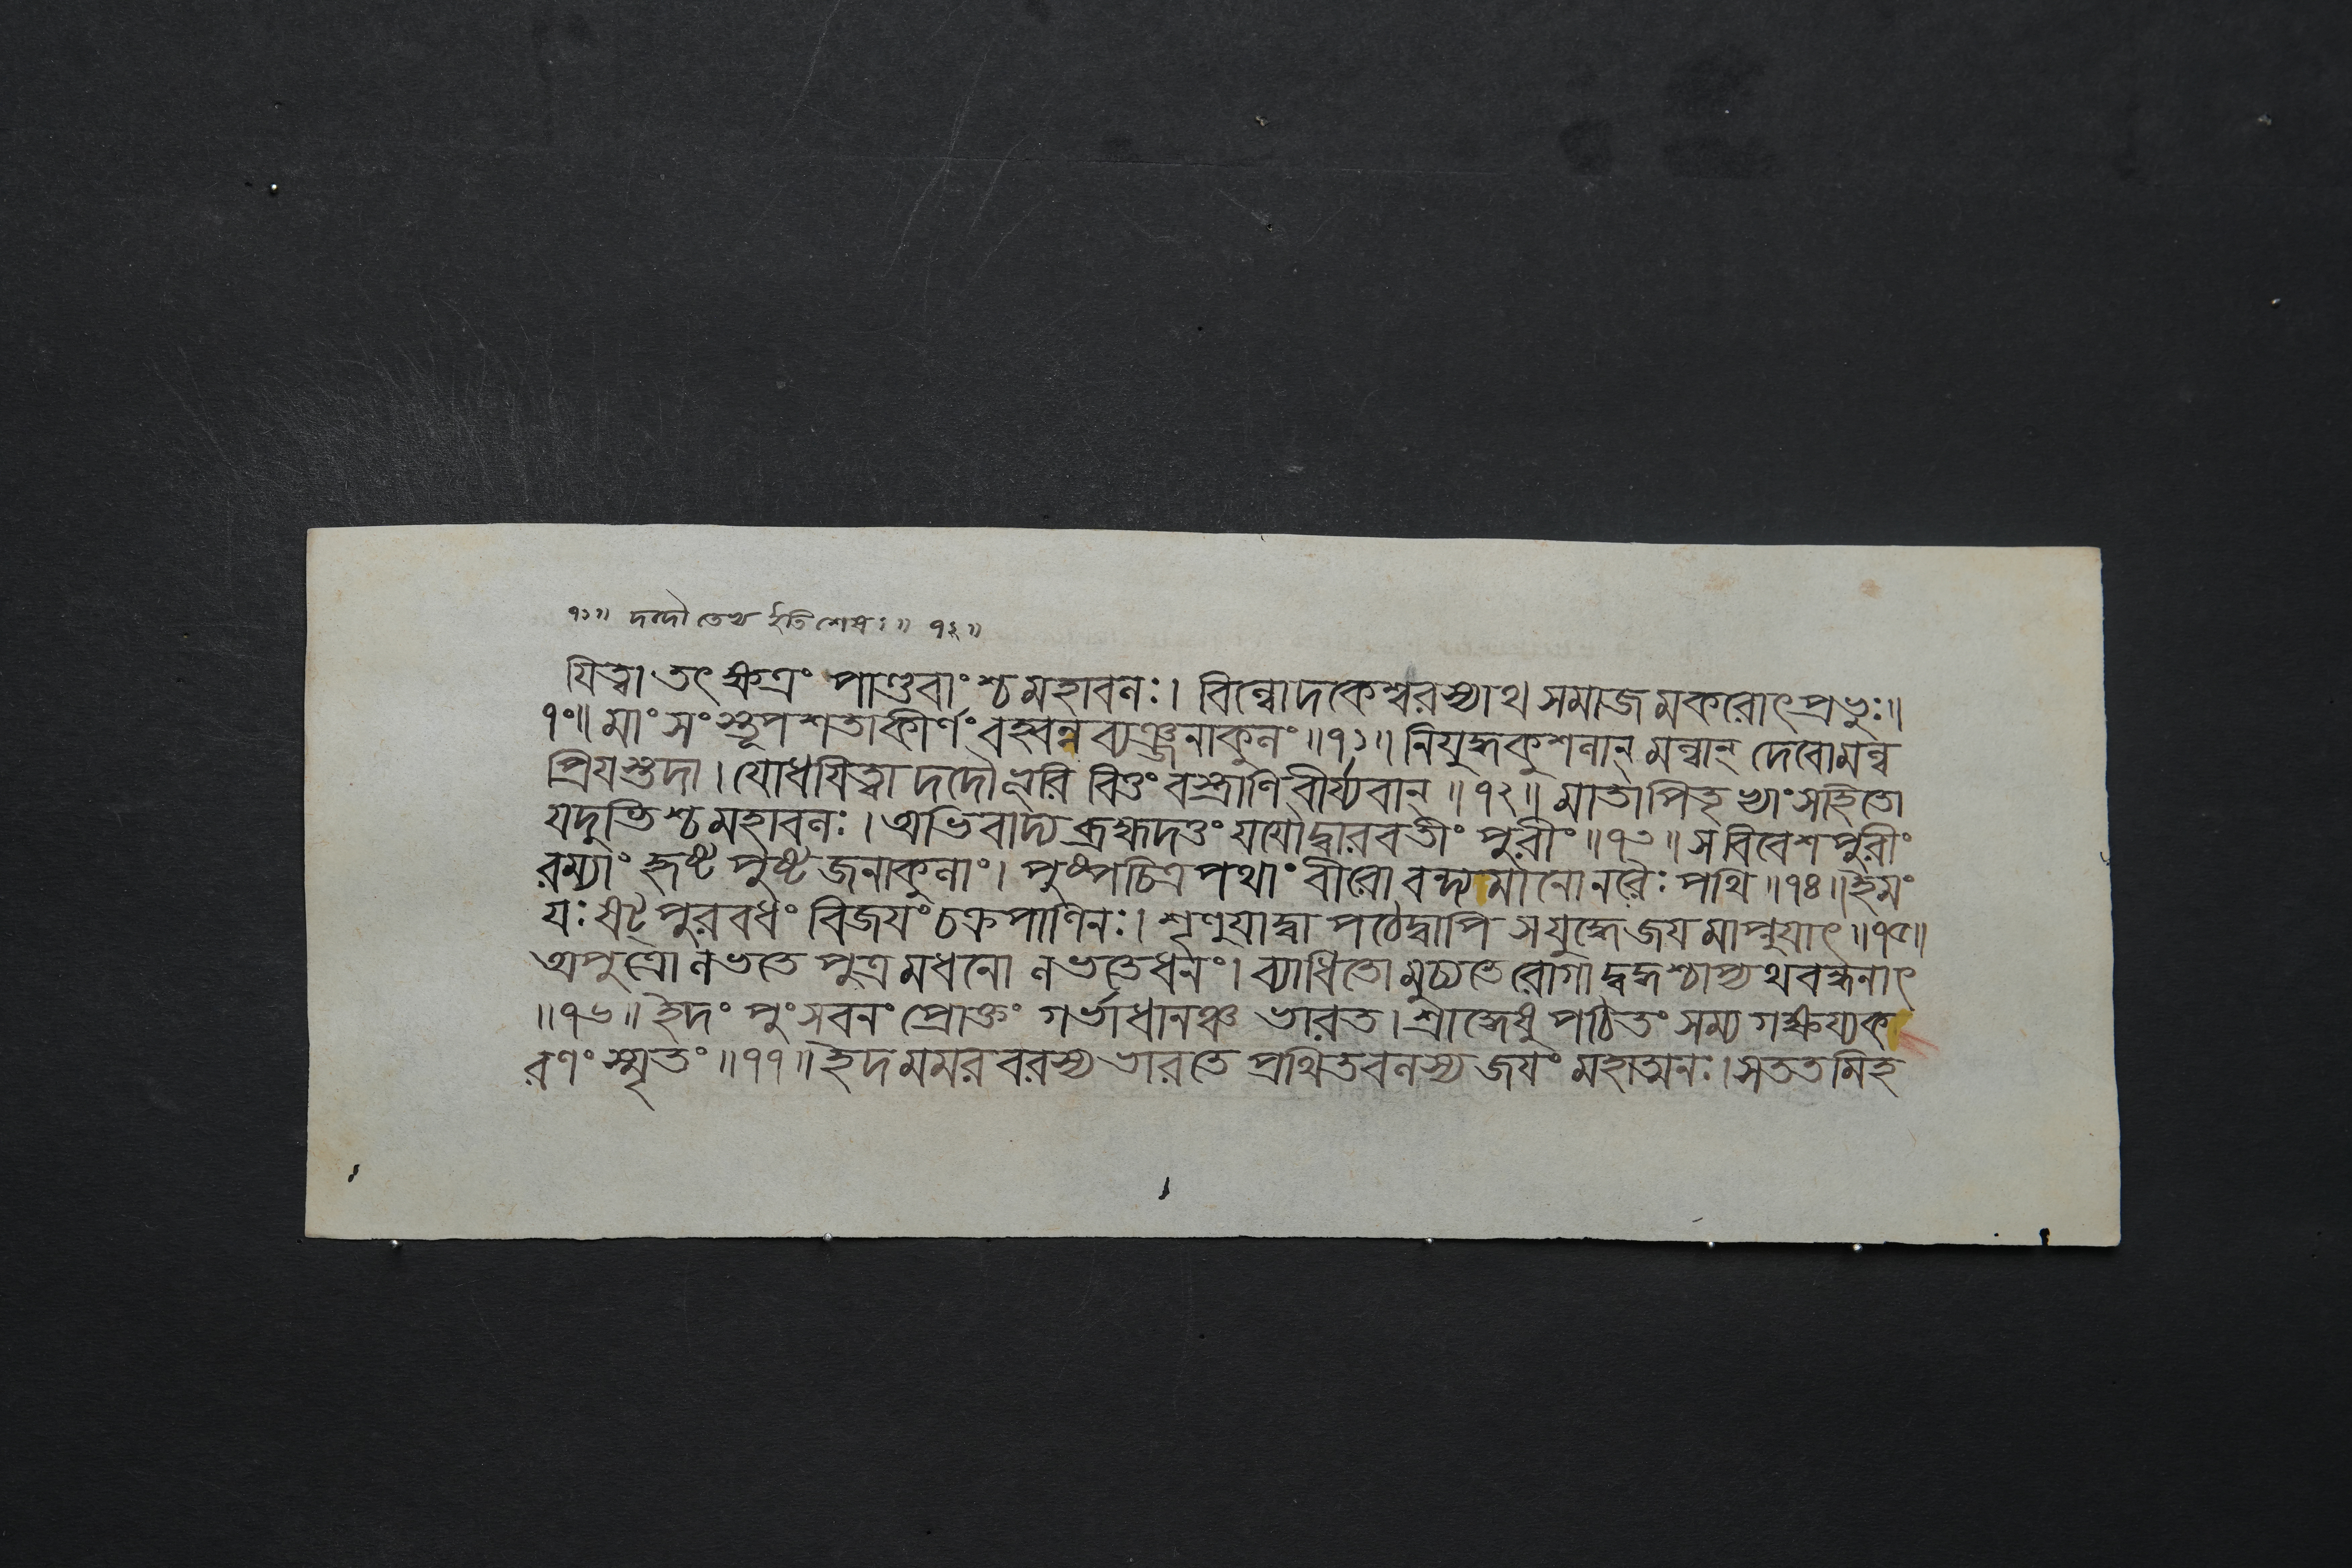 ৭১॥ দদৌ তেথ ইতি শেষঃ॥ ৭২॥
যিত্বা তৎ ক্ষত্রং পাণ্ডবাংশ্চ মহাবলঃ। বিল্বোদকেশ্বরস্যাথ সমাজমকরোৎপ্রভুঃ॥
৭০॥ মাংসংস্তূপশতাকীর্ণং বহ্বন্নব্যঞ্জনাকুলং॥৭১॥ নিযুদ্ধকুশলান্ মল্লান্ দেবোমল্ল
প্রিযস্তদা। যোধযিত্বা দদৌ ভূরি বিত্তং বস্ত্রাণি বীর্য্যবান্॥৭২॥ মাতাপিতৃভ্যাং সহিতো
যদুভিশ্চ মহাবলঃ। অভিবাদ্য ব্রহ্মদত্তং যযৌ দ্বারবতীং পুরীং॥৭৩॥ স বিবেশ পুরীং
রম্যাং হৃষ্টপুষ্টজনাকুলাং। পুষ্পচিত্রপথাং বীরো বন্দ্যমানোনরৈঃ পথি॥৭৪॥ ইমং
যঃ ষট্পুরবধং বিজযং চক্রপাণিনঃ। শৃণুযাদ্বা পঠেদ্বাপি স যুদ্ধে জযমাপ্নুযাৎ॥৭৫॥
অপুত্রো লভতে পুত্রমধনো লভতে ধনং। ব্যাধিতো মুচ্যতে রোগাদ্বদ্ধশ্চাপ্যথ বন্ধনাৎ
॥৭৬॥ ইদং পুংসবনং প্রোক্তং গর্ভাধানঞ্চ ভারত। শ্রাদ্ধেষু পঠিতং সম্যগক্ষয্যক
রণং স্মৃতং॥৭৭॥ ইদমমরবরস্য ভারতে প্রথিতবলস্য জযং মহাত্মনঃ। সততমিহ